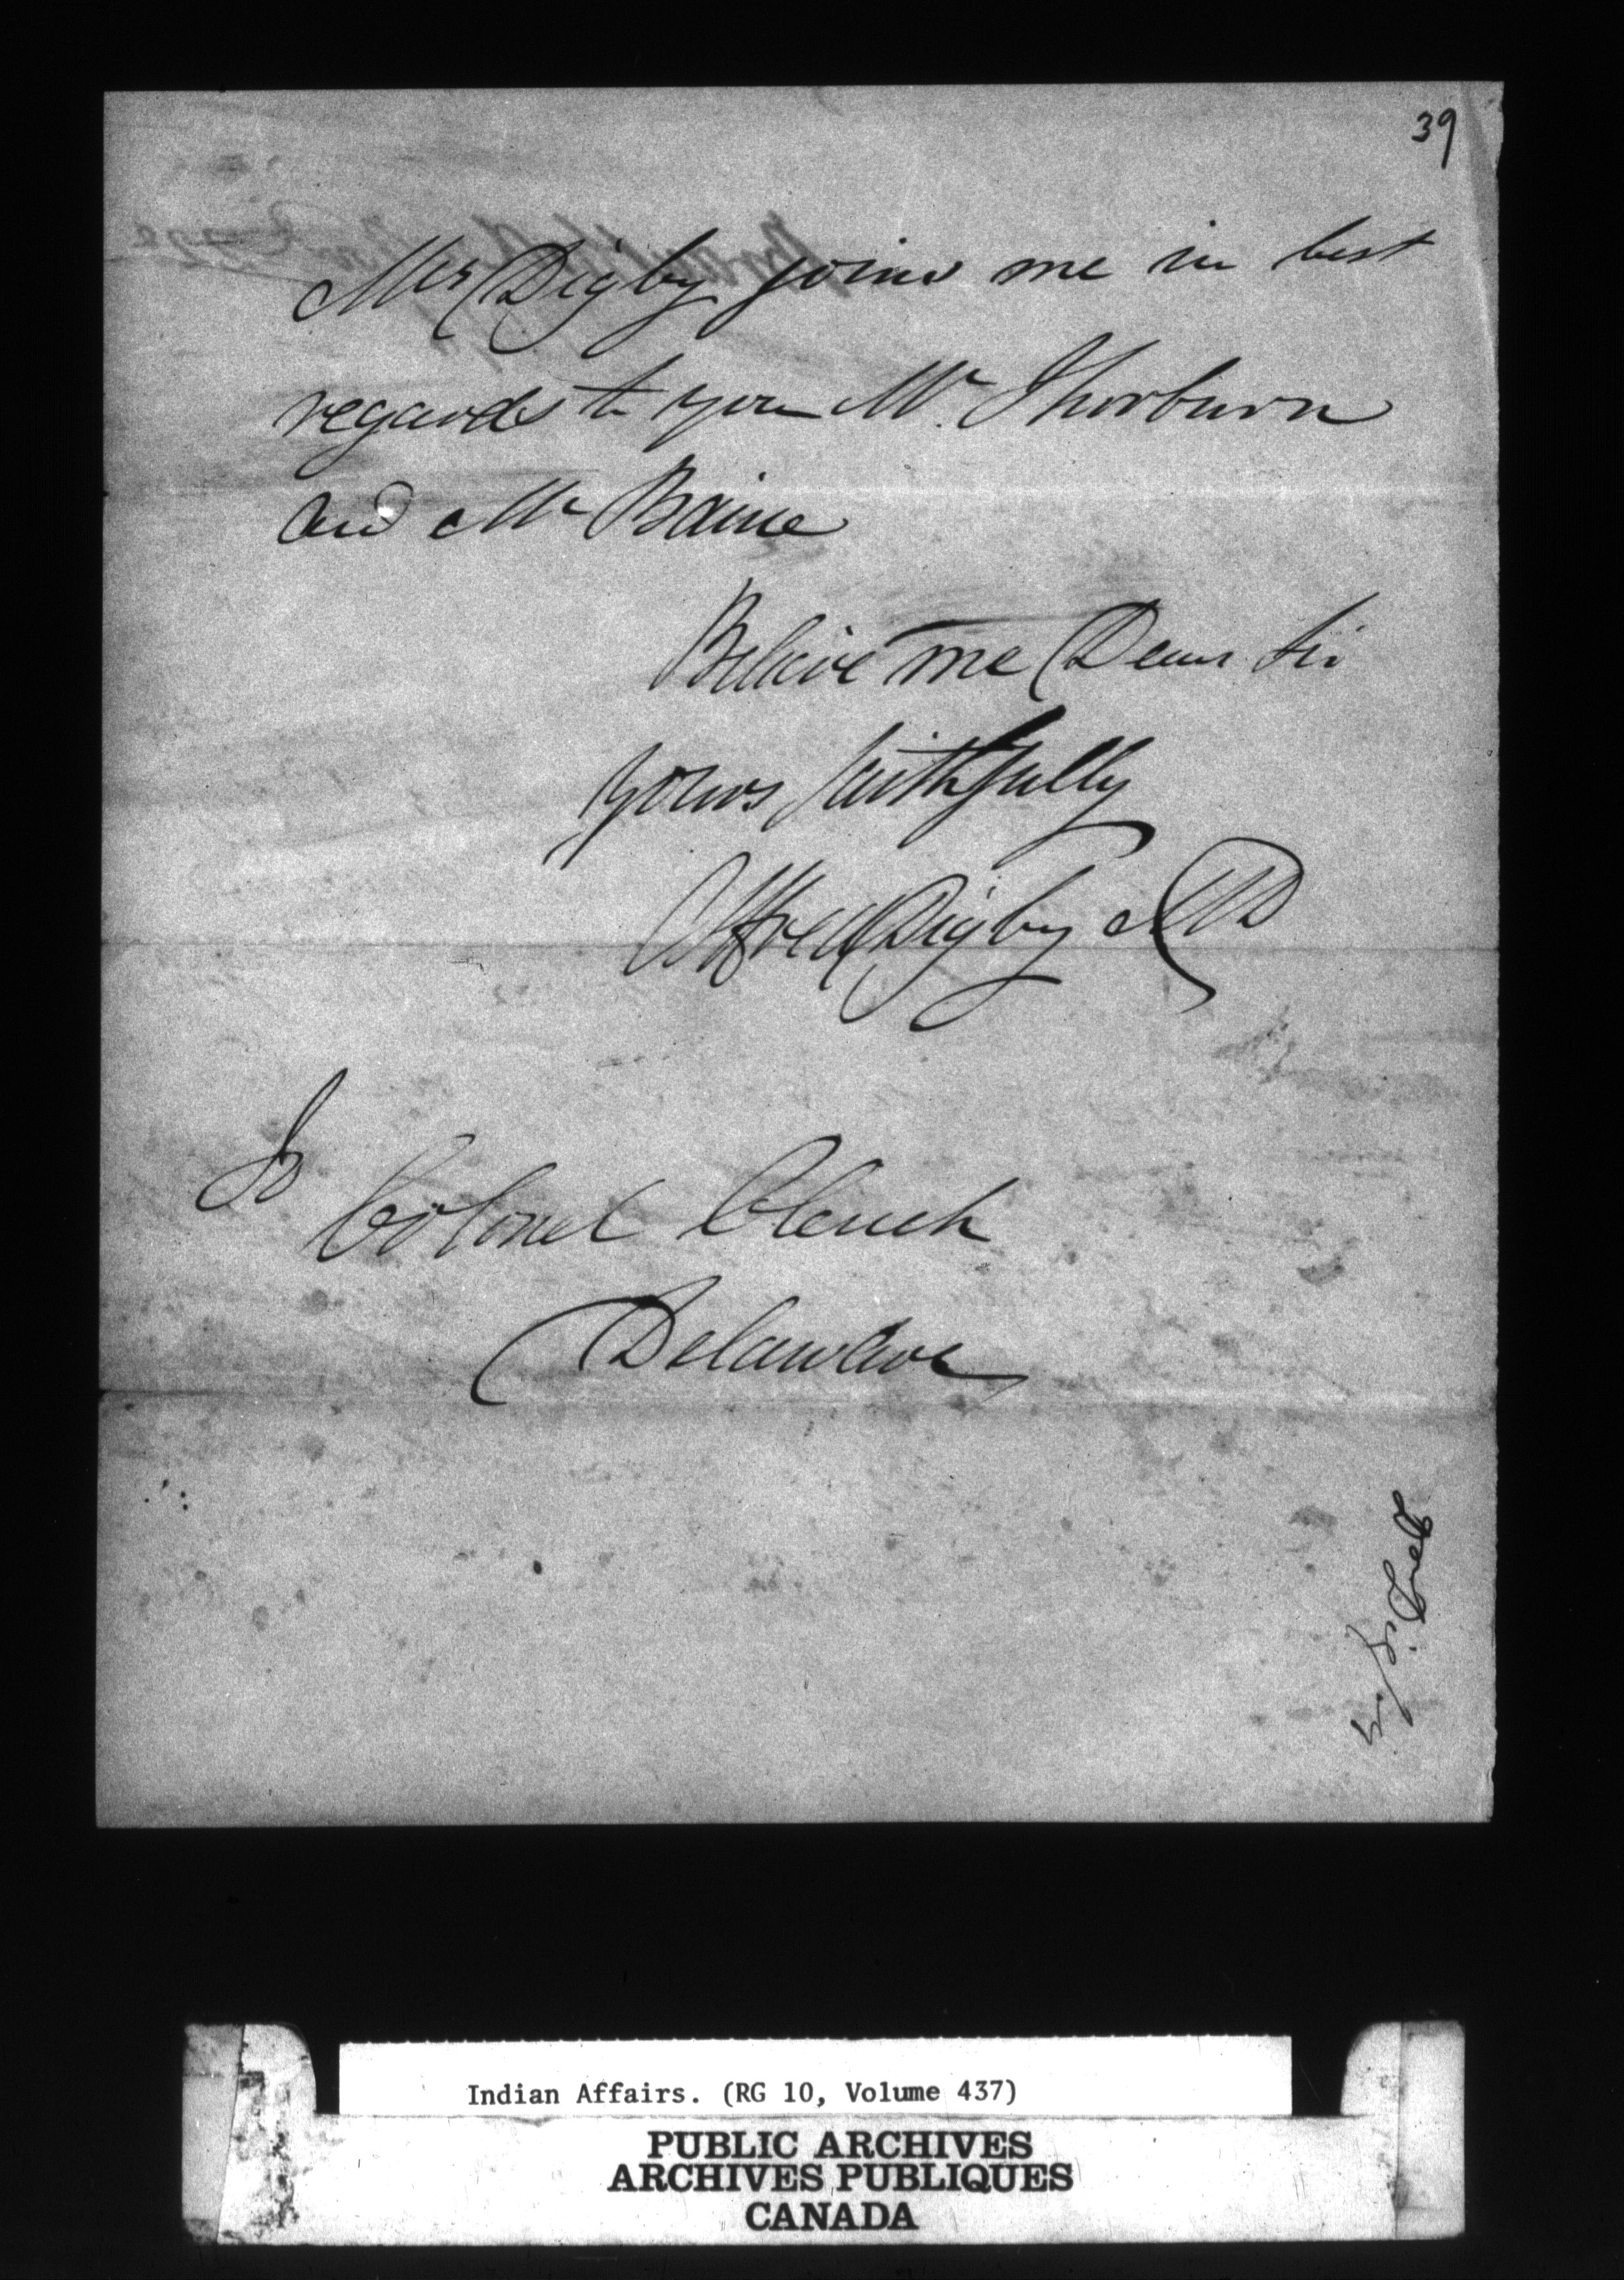 39
Mrs Digby joins me in best
regards to you Mr. Thorburn
and Mr Baine
Believe me Dear Sir
yours faithfully
Alfred Digby MD
To
Colonel Clench
Delaware
Indian Affairs. (RG 10, Volume 437)
PUBLIC ARCHIVES
ARCHIVES PUBLIQUES
CANADA